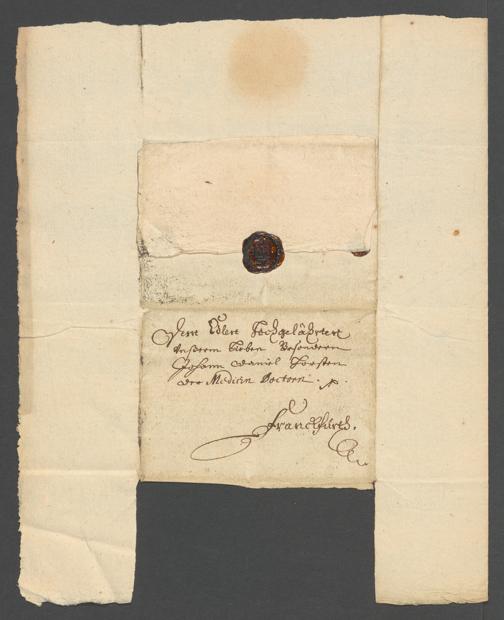 Dem Edlen Hochgelährten
Unserm Lieben Besondern
Johann Daniel Horsten
der Medicin Doctorn
Franckfurth.